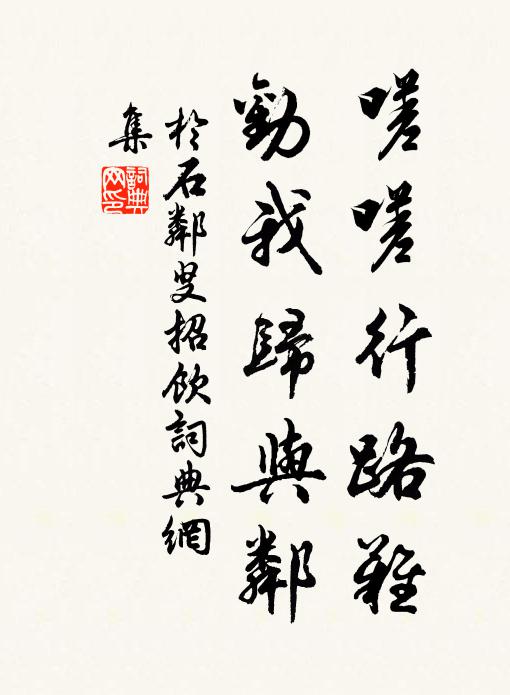 嗟嗟行路難
勸我歸與鄰
於石鄰叟招飲詞典網
集
詞典
网印